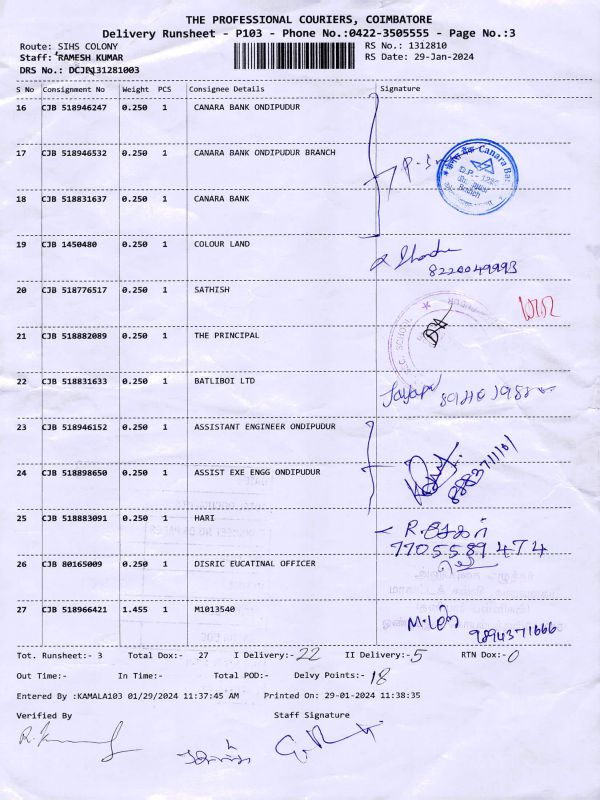 THE PROFESSIONAL COURIERS, COIMBATORE
Delivery Runsheet - P103 - Phone No.:0422-3505555 - Page No.:3
Route: SIHS COLONY
RS No.: 1312810
Staff: RAMESH KUMAR
RS Date: 29-Jan-2024
DRS No.: DCJP131281003
S No Consignment No Weight PCS Consignee Details Signature
16 CJB 518946247 0.250 1 CANARA BANK ONDIPUDUR
17 CJB 518946532 0.250 1 CANARA BANK ONDIPUDUR BRANCH
Canara Ban
18 CJB 518831637 0.250 1 CANARA BANK
19 CJB 1450480 0.250 1 COLOUR LAND
8220049993
20 CJB 518776517 0.250 1 SATHISH
21 CJB 518882089 0.250 1 THE PRINCIPAL
SCHOOL
22 CJB 518831633 0.250 1 BATLIBOI LTD
23 CJB 518946152 0.250 1 ASSISTANT ENGINEER ONDIPUDUR
24 CJB 518898650 0.250 1 ASSIST EXE ENGG ONDIPUDUR
25 CJB 518883091 0.250 1 HARI
7705589474
26 CJB 80165009 0.250 1 DISRIC EUCATINAL OFFICER
27 CJB 518966421 1.455 1 M1013540
9894371666
Tot. Runsheet:- 3 Total Dox:- 27 I Delivery:- 22 II Delivery:- 5 RTN Dox:- 0
Out Time:- In Time:- Total POD:- Delvy Points:- 18
Entered By :KAMALA103 01/29/2024 11:37:45 AM Printed On: 29-01-2024 11:38:35
Verified By Staff Signature